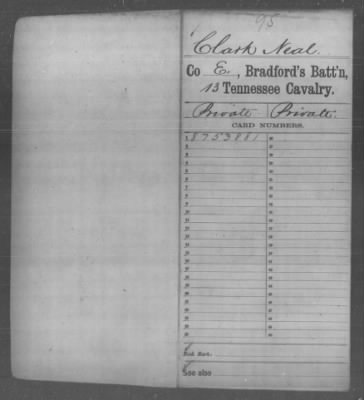 95
Clark Neal.
Co E., Bradford's Batt'n,
13 Tennessee Cavalry.
Private Private.
CARD NUMBERS.
1 8753881
Book Mark:
See also